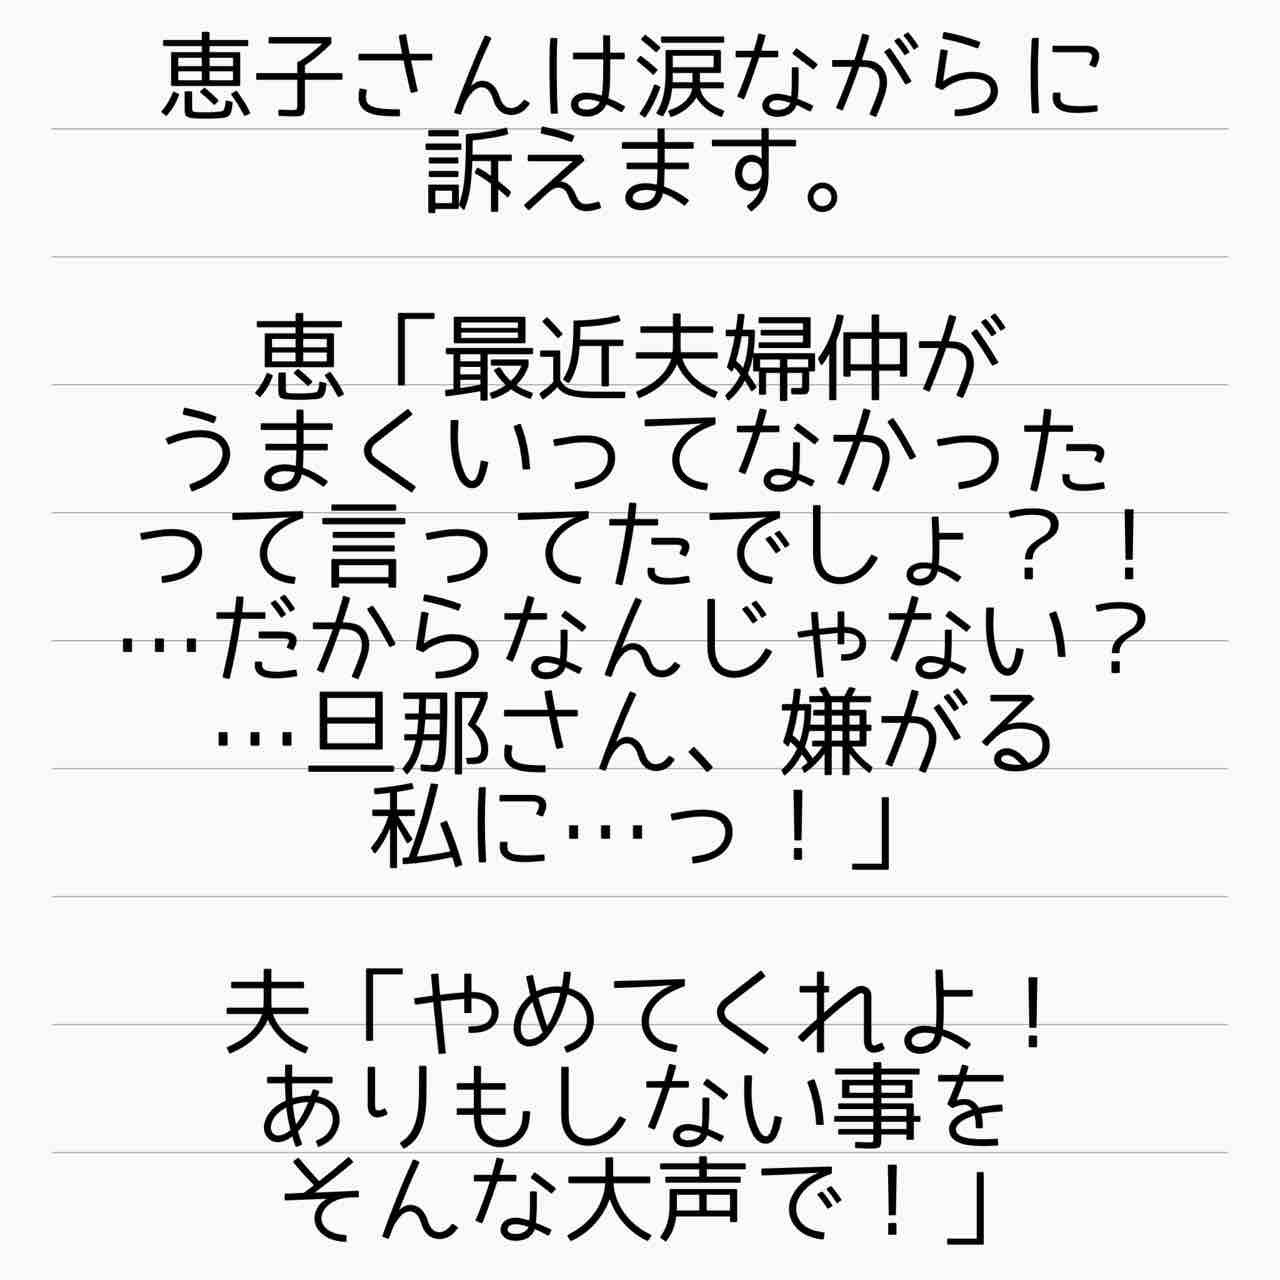 恵子さんは涙ながらに
訴えます。
恵「最近夫婦仲が
うまくいってなかった
って言ってたでしょ？！
…だからなんじゃない？
…旦那さん、嫌がる
私に…っ！」
夫「やめてくれよ！
ありもしない事を
そんな大声で！」